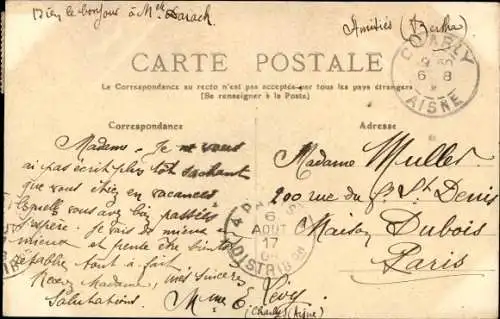 Bien le bonjour à Mlle Darach
Amitiés (Bertha)
CARTE POSTALE
La Correspondance au recto n'est pas acceptée par tous les pays étrangers
(Se renseigner à la Poste)
Correspondance
Madame - Je ne vous
ai pas écrit plus tôt sachant
que vous étiez en vacances
lesquelles vous avez bien passées
j'espère. Je vais de mieux en
mieux et pense être bientôt
rétablie tout à fait
Recevez Madame, mes sincères
Salutations.
Mme E. Lévy
(Charly) (Aisne)
Adresse
Madame Muller
200 rue du Fg St Denis
Maison Dubois
Paris
CHARLY
9 50
6 8
AISNE
PARIS
6
AOUT
17
DISTRIBON